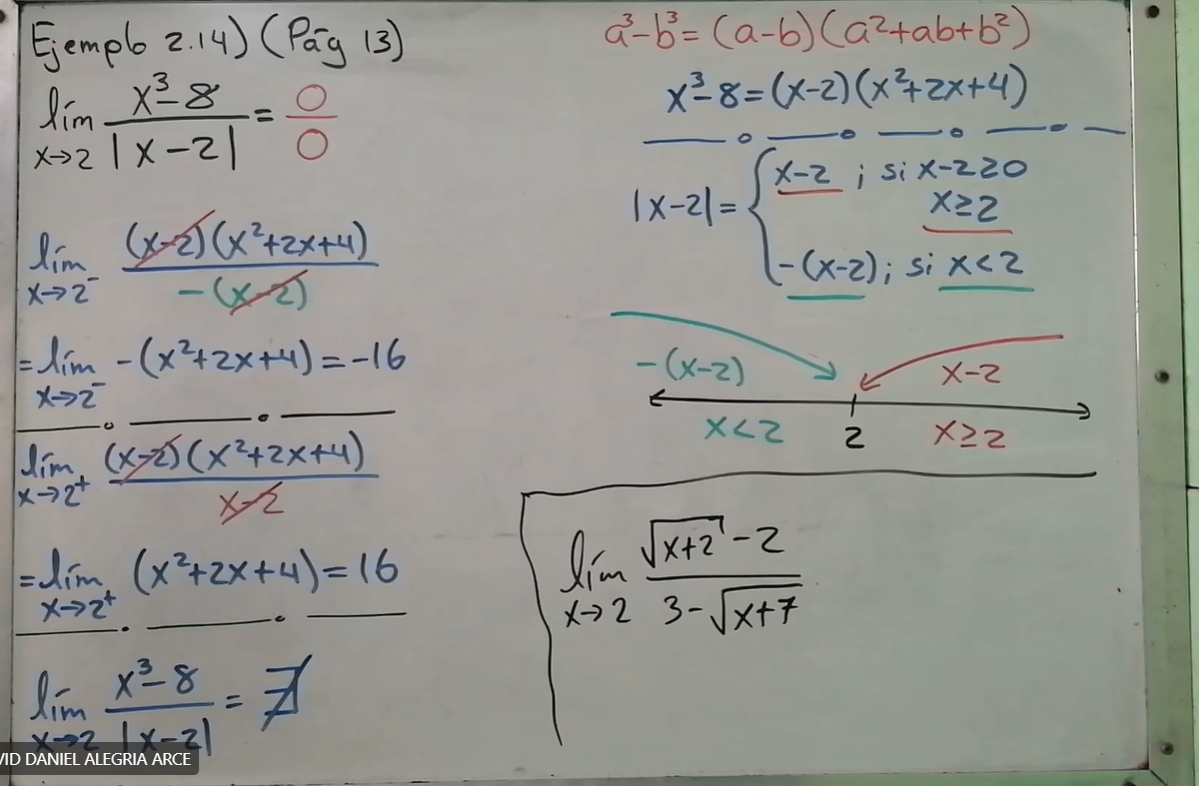 Ejemplo 2.14) (Pág 13)
lím x→2 x³-8 / |x-2| = 0/0
lím x→2⁻ (x-2)(x²+2x+4) / -(x-2)
= lím x→2⁻ -(x²+2x+4) = -16
lím x→2⁺ (x-2)(x²+2x+4) / x-2
= lím x→2⁺ (x²+2x+4) = 16
lím x→2 x³-8 / |x-2| = ∄
a³-b³ = (a-b)(a²+ab+b²)
x³-8 = (x-2)(x²+2x+4)
|x-2| = { x-2 ; si x-2≥0
x≥2
-(x-2) ; si x<2
-(x-2) x-2
x<2 2 x≥2
lím x→2 √(x+2) - 2 / 3 - √(x+7)
VID DANIEL ALEGRIA ARCE